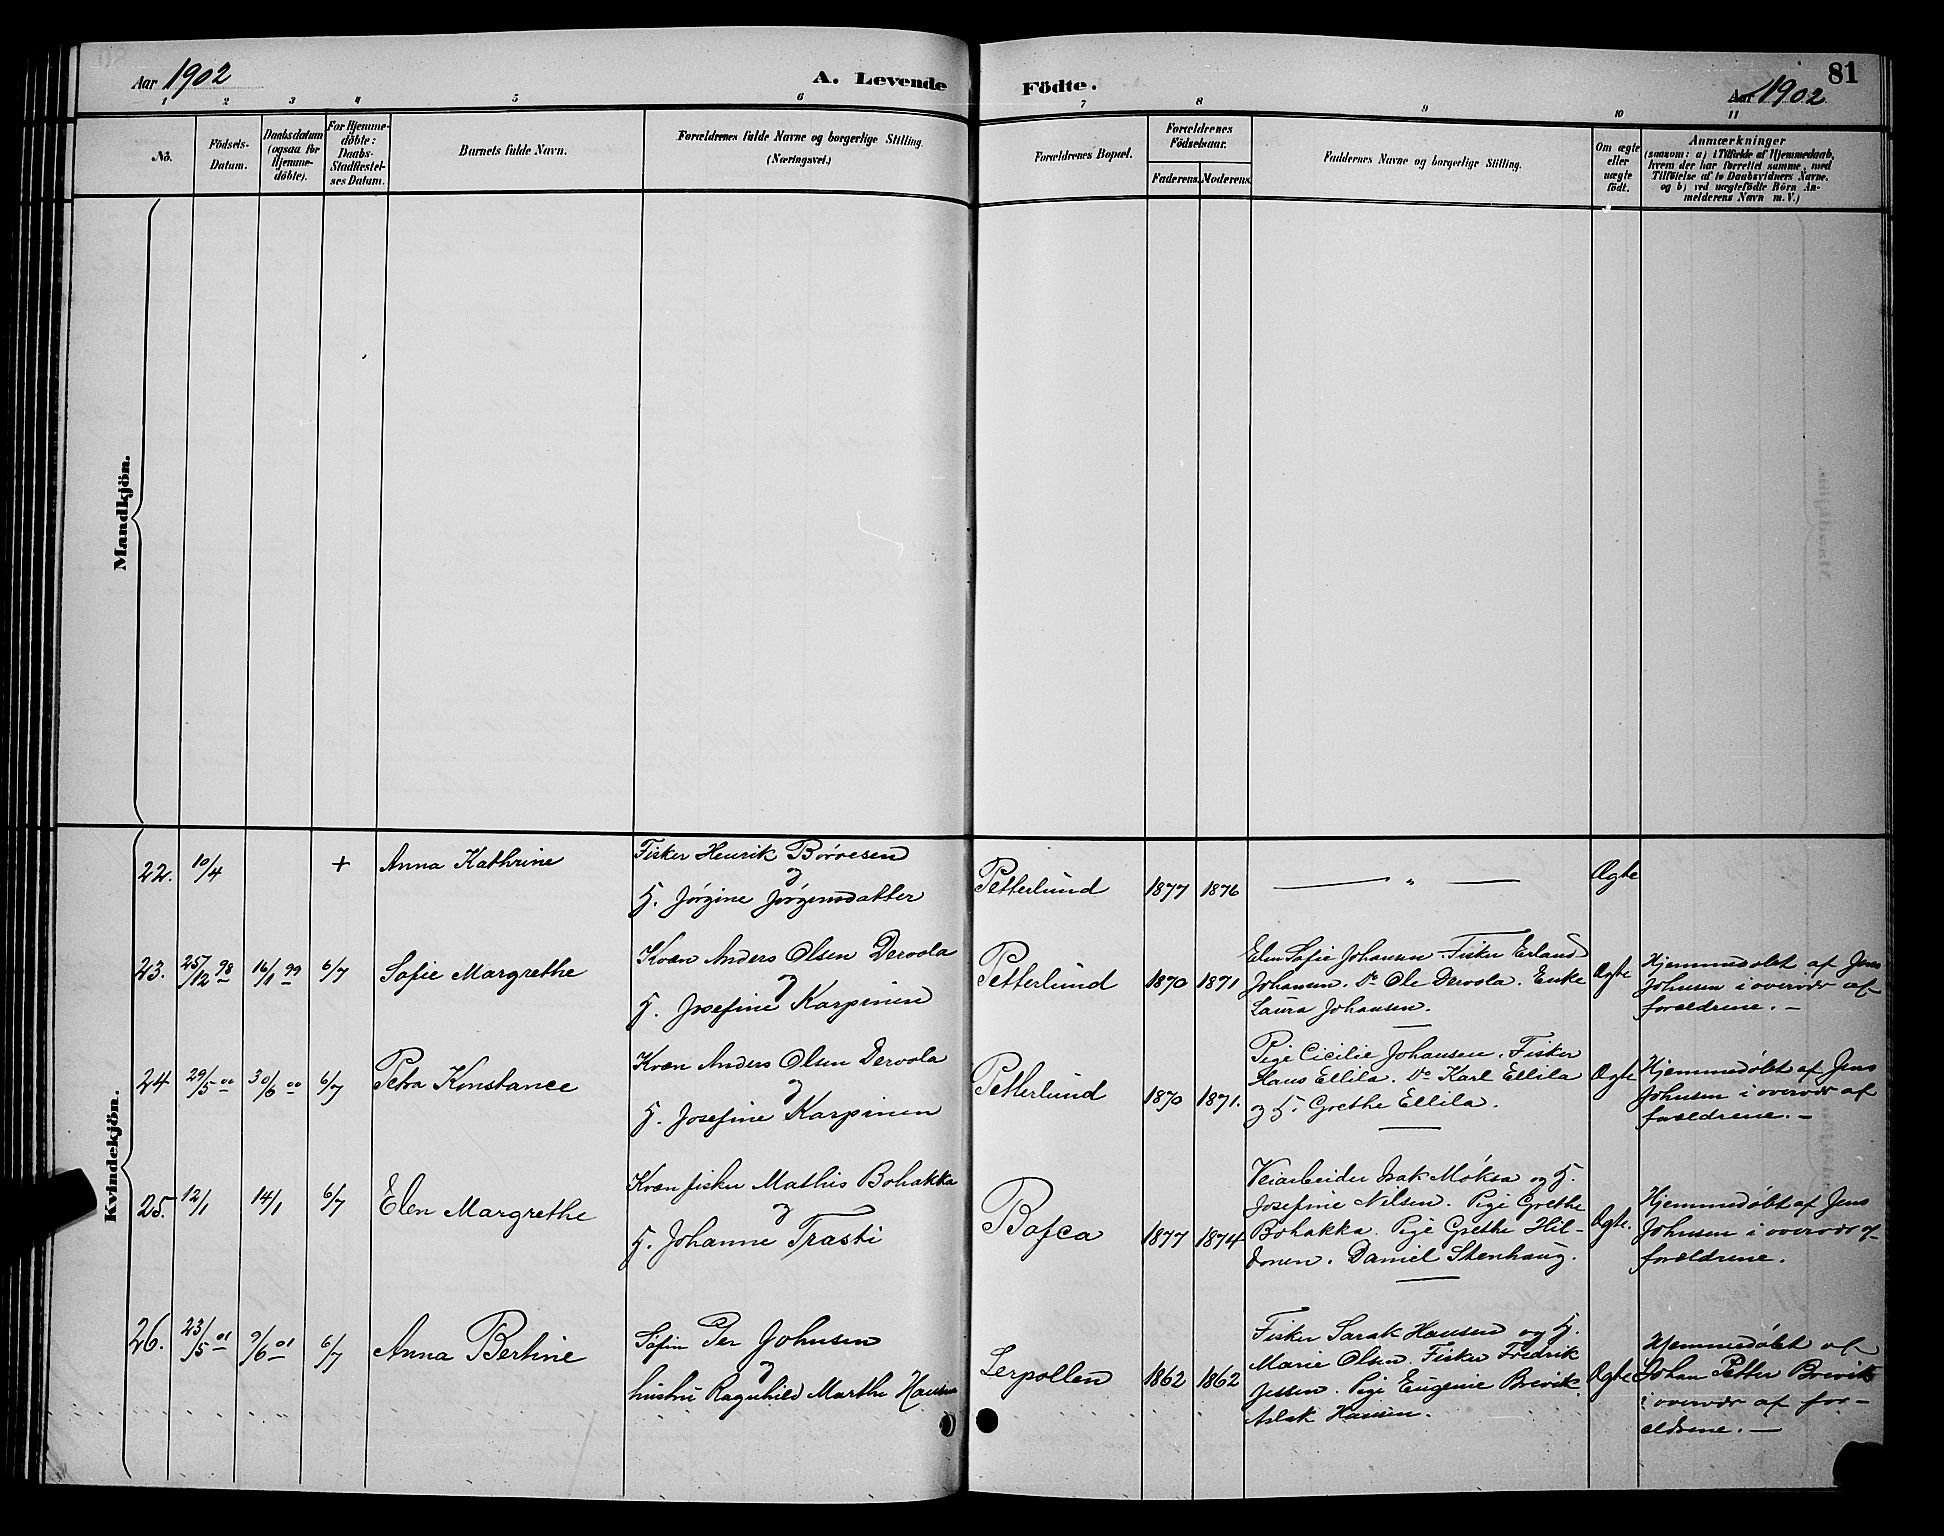 Aar 1902
A. Levende Födte.
81
Aar 1902
1 2 3 4 5 6 7 8 9 10 11
No.
Födsels-Datum.
Daabsdatum (ogsaa for Hjemme-döbte).
For Hjemme-döbte: Daabs-Stadfæstel-ses Datum.
Barnets fulde Navn.
Forældrenes fulde Navne og borgerlige Stilling. (Næringsvei.)
Forældrenes Bopæl.
Forældrenes Födselsaar.
Faderens. Moderens.
Faddernes Navne og borgerlige Stilling.
Om ægte eller uægte födt.
Anmærkninger
(saasom: a) i Tilfælde af Hjemmedaab,
hvem der har forrettet samme, med
Tilföielse af to Daabsvidners Navne.
og b) ved uægtefödte Börn An-
melderens Navn m. V.)
Mandkjön.
Kvindekjön.
22. 10/4 + Anna Kathrine
Fisker Henrik Børresen
og
H. Jørgine Jørgensdatter
Petterlund 1877 1876 — " — Ægte
23. 25/12 98 16/1 99 6/7 Sofie Margrethe
Kvæn Anders Olsen Dervola
og
H. Josefine Karpinen
Petterlund 1870 1871
Elen Sofie Johansen. Fisker Erland
Johansen. Do Ole Dervola. Enke
Laura Johansen.
Ægte
Hjemmedøbt af Jens
Johnsen i overvær af
forældrene. —
24 29/5 00 30/6 00 6/7 Petra Konstance
Kvæn Anders Olsen Dervola
og
H. Josefine Karpinen
Petterlund 1870 1871.
Pige Cicilie Johansen. Fisker
Hans Ellila. Do Karl Ellila
og H. Grethe Ellila.
Ægte
Hjemmedøbt af Jens
Johnsen i overvær af
forældrene. —
25. 12/1 14/1 6/7 Elen Margrethe
Kvæn fisker Mathis Bohakka
og
H. Johanne Trasti
Bofca 1877 1874
Veiarbeider Isak Møksa og H.
Josefine Nilsen. Pige Grethe
Bohakka. Pige Grethe Hil-
donen. Daniel Stenhaug.
Ægte.
Hjemmedøbt af Jens
Johnsen i overvær af
forældrene.
26. 23/5 01 9/6 01 6/7 Anna Bertine
Søfin Per Johnsen
og
hustru Ragnhild Marthe Hansen
Lerpollen 1862 1862
Fisker Sarak Hansen og H.
Marie Olsen. Fisker Fredrik
Jessen. Pige Eugenie Brevik.
Aslak Hansen.
Ægte
Hjemmedøbt af
Johan Petter Brevik
i overvær af for-
ældrene. —